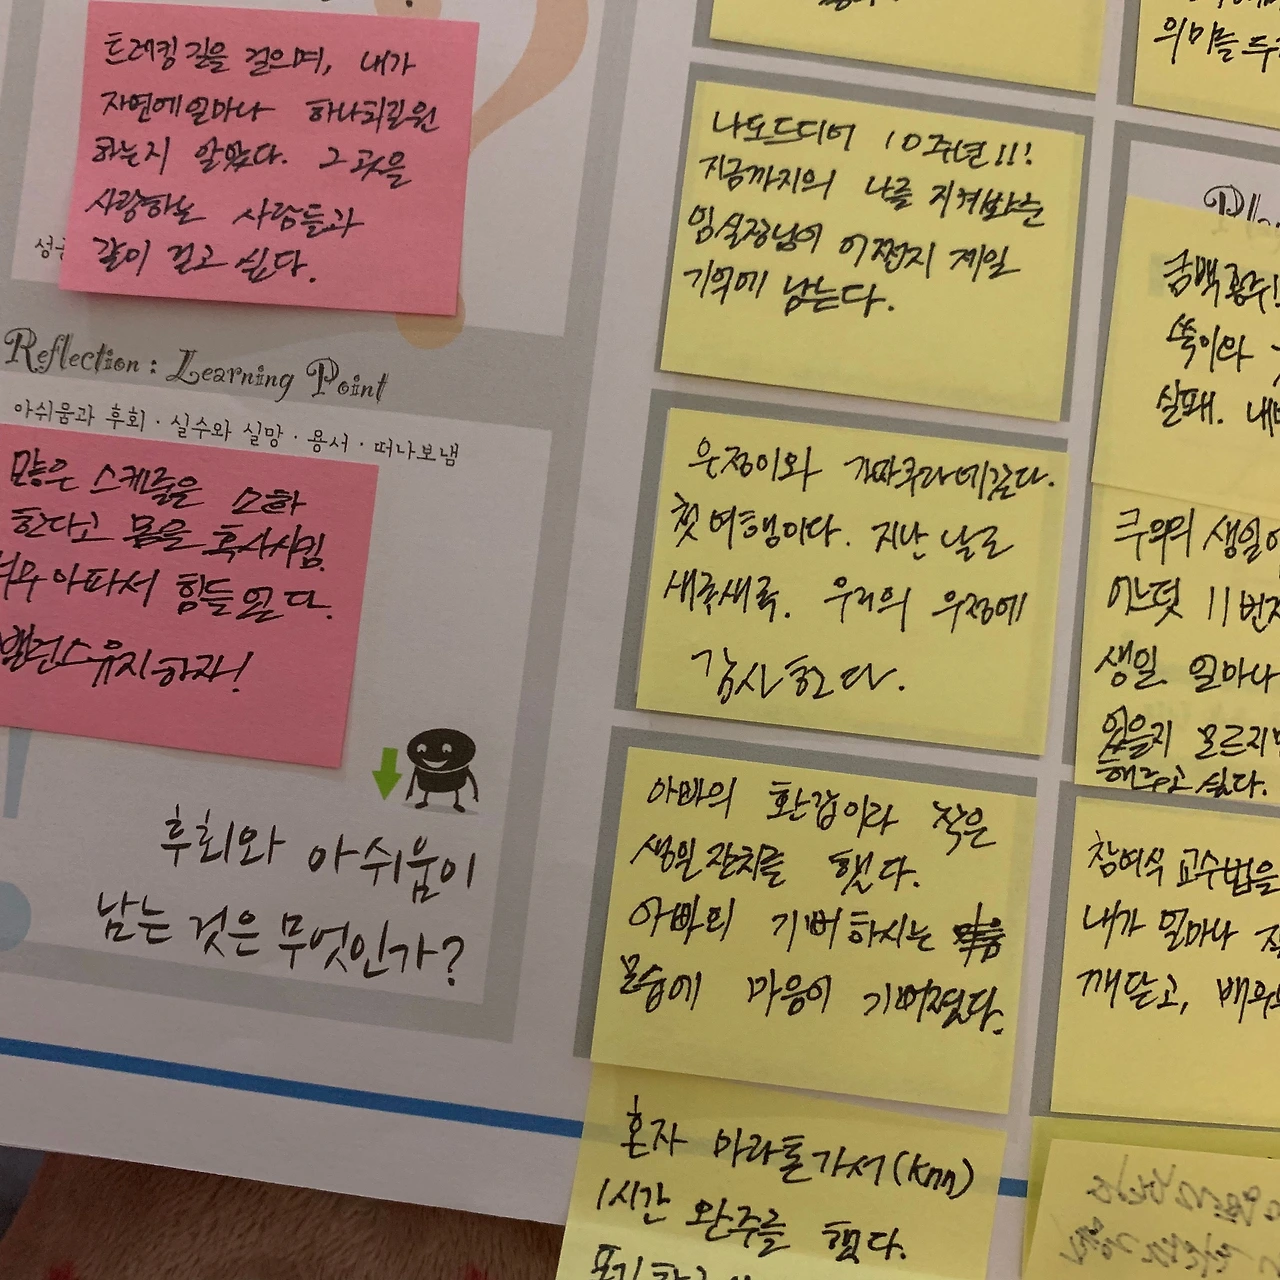 트레킹길을 걸으며, 내가
자연에얼마나 하나되길원
하는지 알았다. 그곳을
사랑하는 사람들과
같이 걷고 싶다.
Reflection : Learning Point
아쉬움과 후회 · 실수와 실망 · 용서 · 떠나보냄
많은 스케줄을 소화
한다고 몸을 혹사시킴.
너무아파서 힘들었다.
밸런스유지하자!
후회와 아쉬움이
남는 것은 무엇인가?
나도드디어 10주년!!!
지금까지의 나를 지켜봐준
임실장님이 어쩐지 제일
기억에 남는다.
은정이와 가짜쿠라데갔다.
첫여행이다. 지난 날로
새록새록. 우리의 우정에
감사한다.
아빠의 환갑이라 작은
생일잔치를 했다.
아빠의 기뻐하시는
모습에 마음이 기뻐졌다.
혼자 마라톤가서(knn)
1시간 완주를 했다.
의미를
금백홍수!
쏙이와
실패.
쿠의의 생일이
어느덧 11번째
생일. 얼마나
있을지 모르지만
해주고싶다.
참여식 교수법을
내가 얼마나
깨닫고,